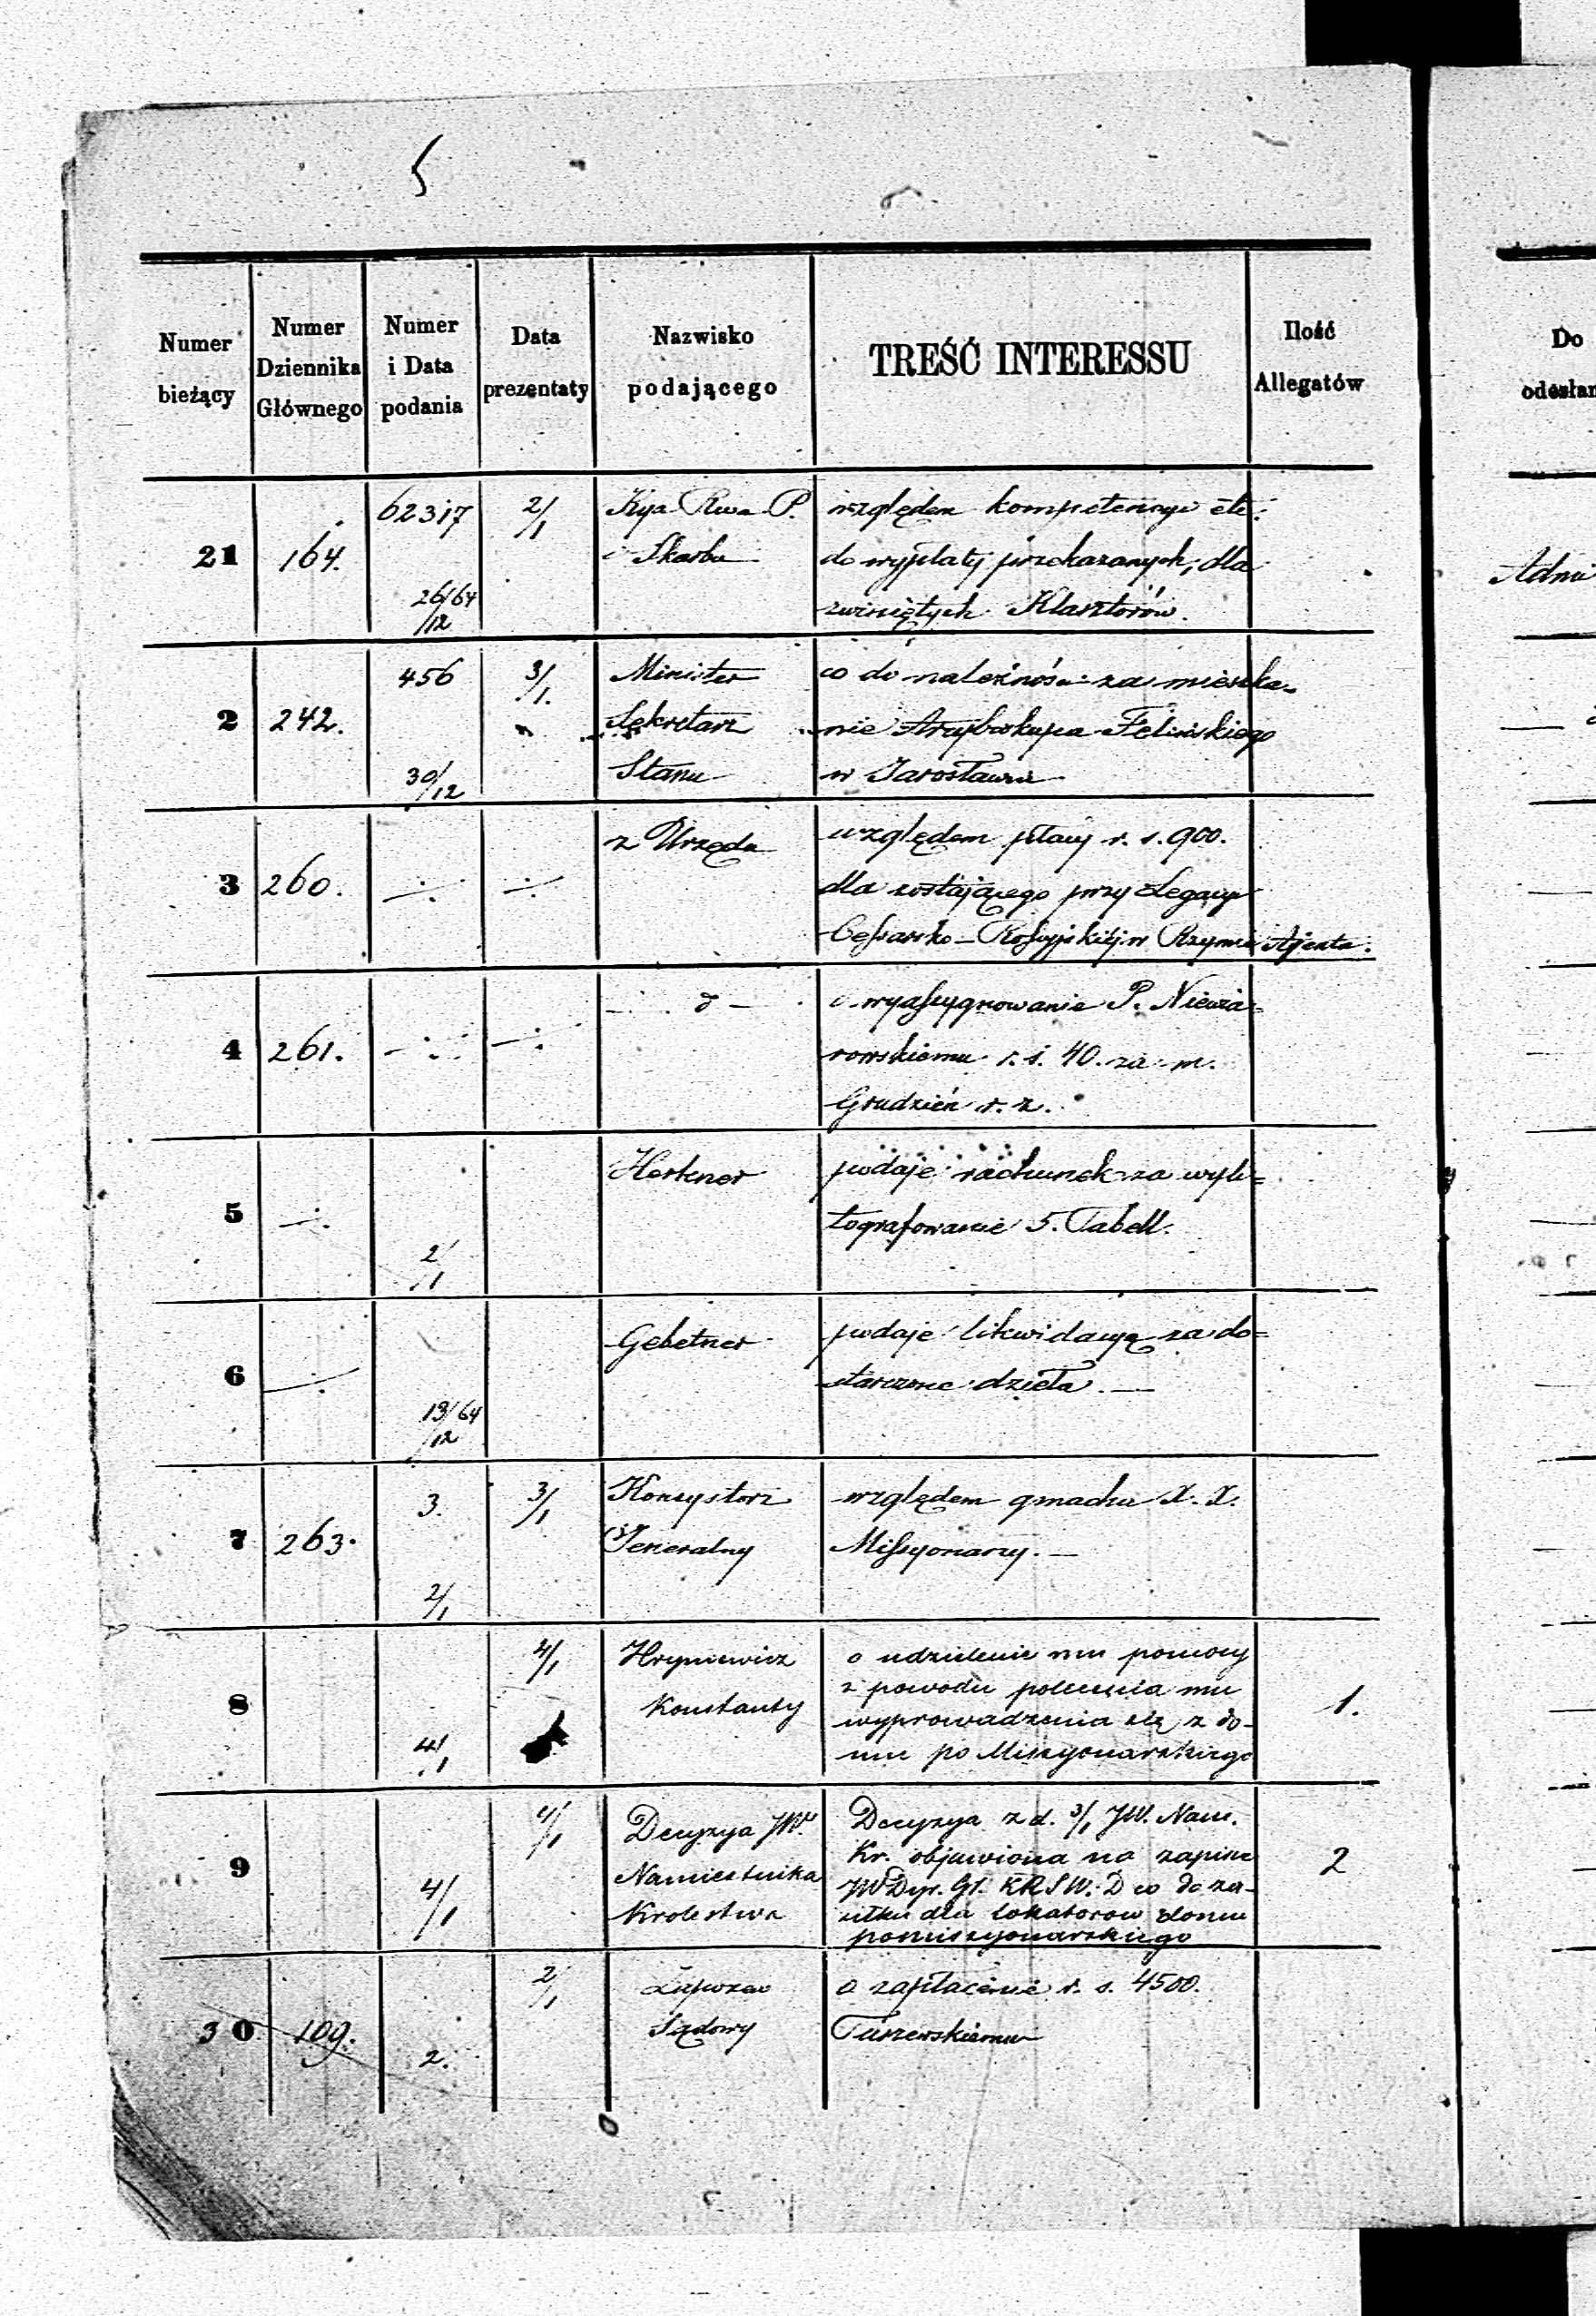 5
Numer bieżący
Numer Dziennika Głównego
Numer i Data podania
Data prezentaty
Nazwisko podającego
TREŚĆ INTERESSU
Ilość Allegatów
Do
21
164.
62317
26/64
/12
2/1
Kya Rwa P.
i Skarbu
względem kompetencyi etc.
do wypłaty przekazanych, dla
zwiniętych Klasztorów.
2
242.
456
30/12
3/1.
Minister
Sekretarz
Stanu
co do należnośći za mieszka-
nie Arcybiskupa Felińskiego
w Jarosławiu
3
260.
z Urzędu
względem płacy r. s. 900.
dla zostającego przy Legacyi
Cesarsko-Rossyjskiéj w Rzymie Ajenta.
4
261.
o wyassygnowanie P. Niewia=
rowskiemu r. s. 40. za m.
Grudzień r. z.
5
2/1
Herkner
podaje rachunek za wyli=
tografowanie 5. Tabell.
6
19/64
/12
Gebetner
podaje likwidacyą za do=
starczone dzieła.
7
263.
3.
2/1
3/1
Konsystorz
Jeneralny
względem gmachu X. X.
Missyonarzy.
8
4/1
4/1
Hryniewicz
Konstanty
o udzielenie mu pomocy
z powodu polecenia mu
wyprowadzenia się z do-
mu po Missyonarskiego
1.
9
4/1
4/1
Decyzya JW.
Namiestnika
Królestwa
Decyzya z d. 3/1 JW. Nam.
Kr. objawiona na zapisce
JW Dyr. Gł. KRSW. D co do za-
siłku dla lokatorow domu
pomissyonarskiego
2
30
109.
2.
2/1
Zapozew
Sądowy
o zapłacenie r. s. 4500.
Taszewskiemu
Admi